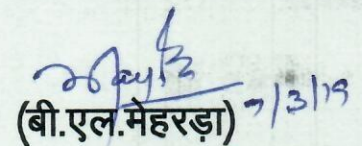 (बी.एल.मेहरड़ा) 7/3/19